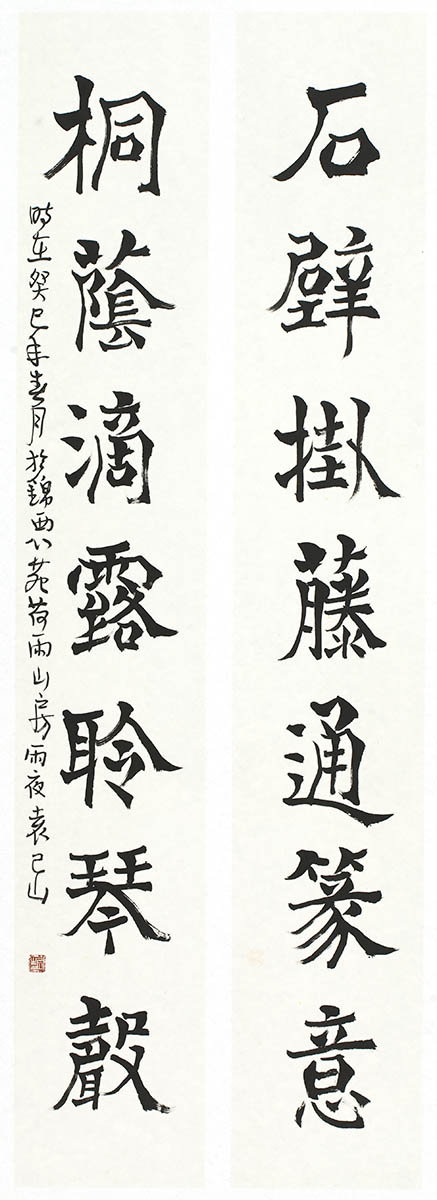 石壁掛藤通篆意
桐蔭滴露聆琴聲
時在癸巳年春月於錦西八花荷雨山房雨夜袁已山